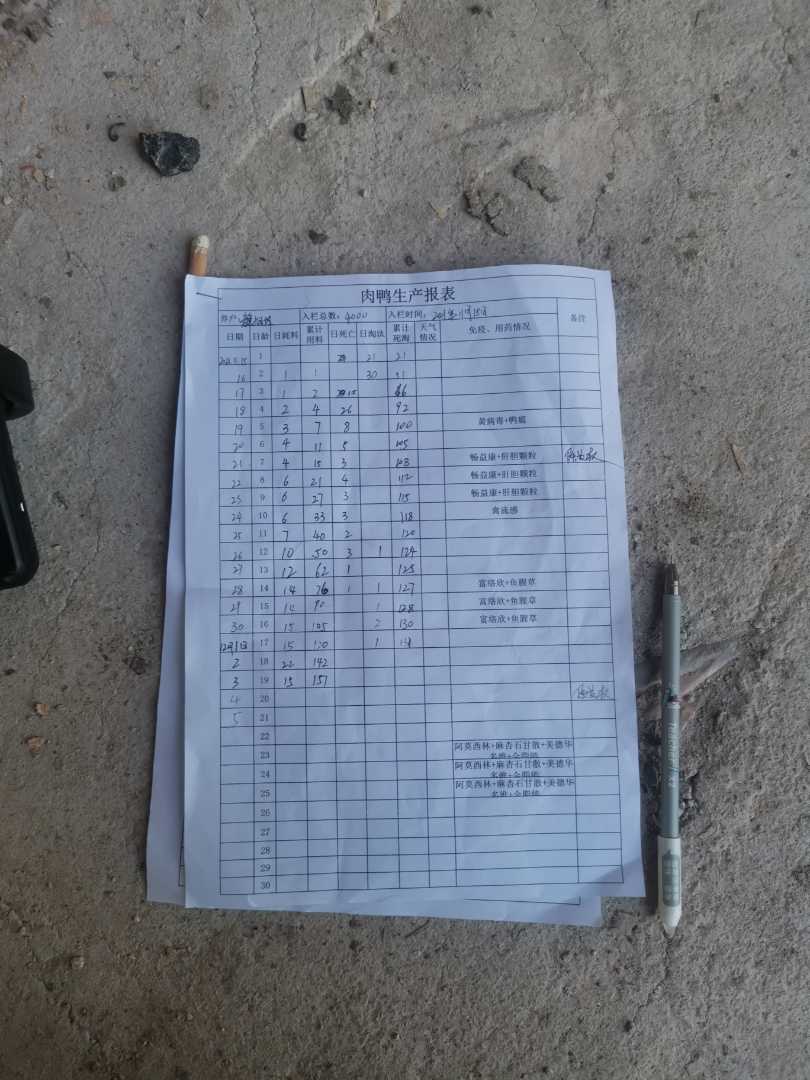 肉鸭生产报表
养户: 入栏总数: 4000 入栏时间: 备注
日期 日龄 日耗料 累计用料 日死亡 日淘汰 累计死淘 天气情况 免疫、用药情况
1 21 21
16 2 1 1 30
17 3 1 2
18 4 2 4 26 92
19 5 3 7 8 100 黄病毒+鸭瘟
20 6 4 11 5 105
21 7 4 15 3 108 畅益康+肝胆颗粒
22 8 6 21 4 112 畅益康+肝胆颗粒
23 9 6 27 3 115 畅益康+肝胆颗粒
24 10 6 33 3 118 禽流感
25 11 7 40 2 120
26 12 10 50 3 1 124
27 13 12 62 1 125
28 14 14 76 1 1 127 富络欣+鱼腥草
29 15 14 90 1 128 富络欣+鱼腥草
30 16 15 105 2 130 富络欣+鱼腥草
12月1日 17 15 120 1 131
2 18 22 142
3 19 15 157
4 20
5 21
22
23 阿莫西林+麻杏石甘散+美德华
24 阿莫西林+麻杏石甘散+美德华
25 阿莫西林+麻杏石甘散+美德华
26
27
28
29
30